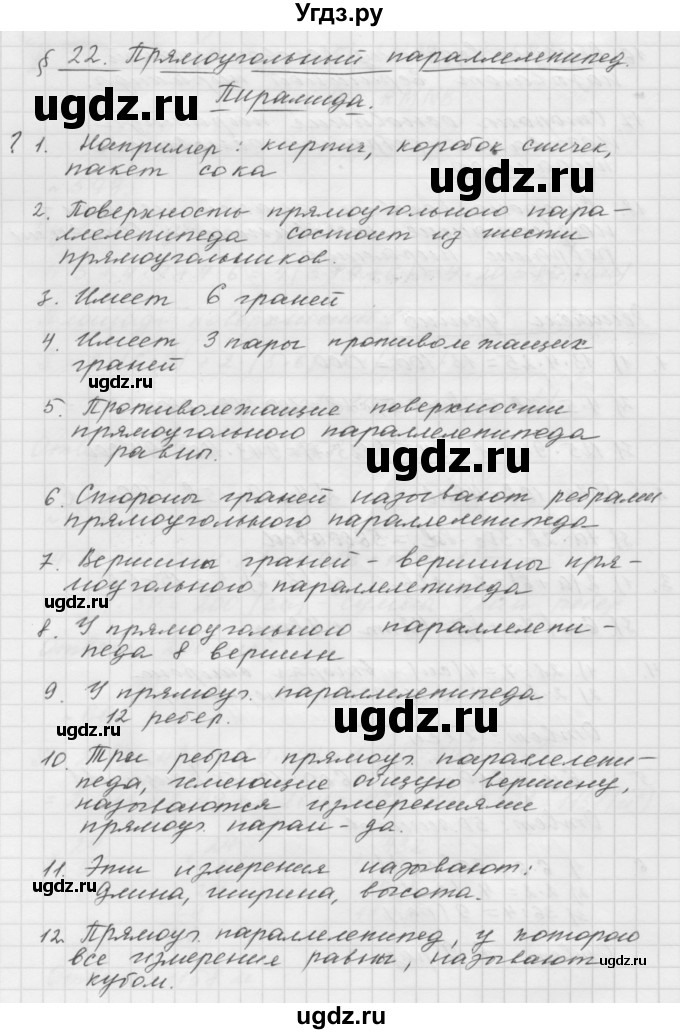 Угдз.ру
§ 22. Прямоугольный параллелепипед.
ugdz.ru
Пирамида.
? 1. Например: кирпич, коробок спичек,
пакет сока
ugdz.ru
2. Поверхность прямоугольного пара-
ллелепипеда состоит из шести
прямоугольников.
ugdz.ru
3. Имеет 6 граней
4. Имеет 3 пары противолежащих
граней
ugdz.ru
5. Противолежащие поверхности
прямоугольного параллелепипеда
равны.
ugdz.ru
6. Стороны граней называют ребрами
прямоугольного параллелепипеда
7. Вершины граней - вершины пря-
моугольного параллелепипеда
ugdz.ru
8. У прямоугольного параллелепи-
педа 8 вершин
9. У прямоуг. параллелепипеда
12 ребер.
ugdz.ru
ugdz.ru
10. Три ребра прямоуг. параллелепи-
педа, имеющие общую вершину,
называются измерениями
прямоуг. парал-да.
11. Эти измерения называют:
длина, ширина, высота.
ugdz.ru
12. Прямоуг. параллелепипед, у которого
все измерения равны, называют
кубом.
ugdz.ru
ugdz.ru
ugdz.ru